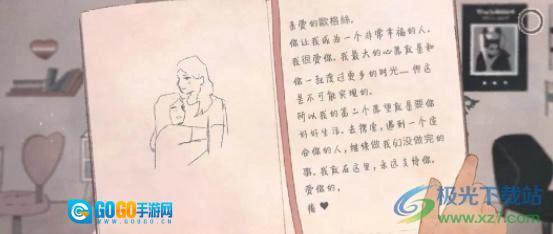 亲爱的歐格絲,
你让我成为一个非常幸福的人。
我很爱你。我最大的心愿就是和
你一起度过更多的时光——但这
是不可能实现的。
所以我的第二个愿望就是要你
好好生活。去探索,遇到一个适
合你的人,继续做我们没做完的
事。我就在这里,永远支持你。
爱你的,
GOGO手游网
WWW.GOGO.COM
极光下载站
www.xz7.com